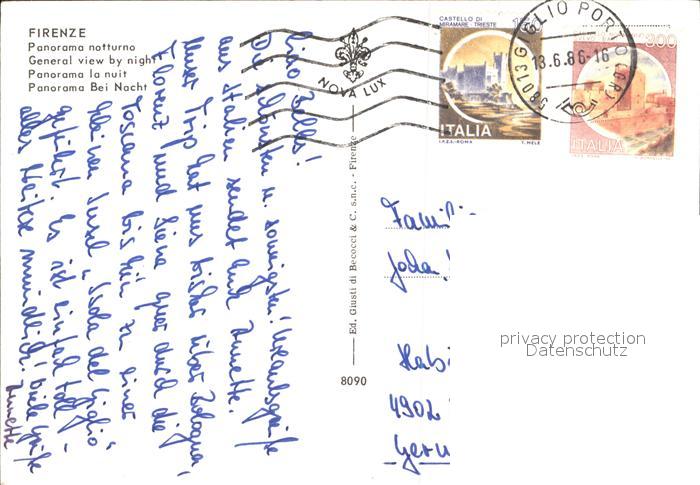 FIRENZE
Panorama notturno
General view by night
Panorama la nuit
Panorama Bei Nacht
NOVA LUX
CASTELLO DI
MIRAMARE - TRIESTE
ITALIA
I.P.Z.S.-ROMA T. MELE
58013 GIGLIO PORTO (GR)
13.6.86-16
300
ITALIA
Ciao Belles!
Die schönsten u. sonnigsten! Urlaubsgrüße
aus Italien sendet Euch Annette.
Unser Trip hat uns bisher über Bologna,
Florenz und Siena quer durch die
Toscana bis hin zu einer
kleinen Insel „Isola del Giglio"
geführt. Es ist einfach toll -
alles Weitere mündlich! Viele Grüße
Annette
Ed. Giusti di Becocci & C. s.n.c. - Firenze
8090
Famili
Johan
4902
Germ
privacy protection
Datenschutz